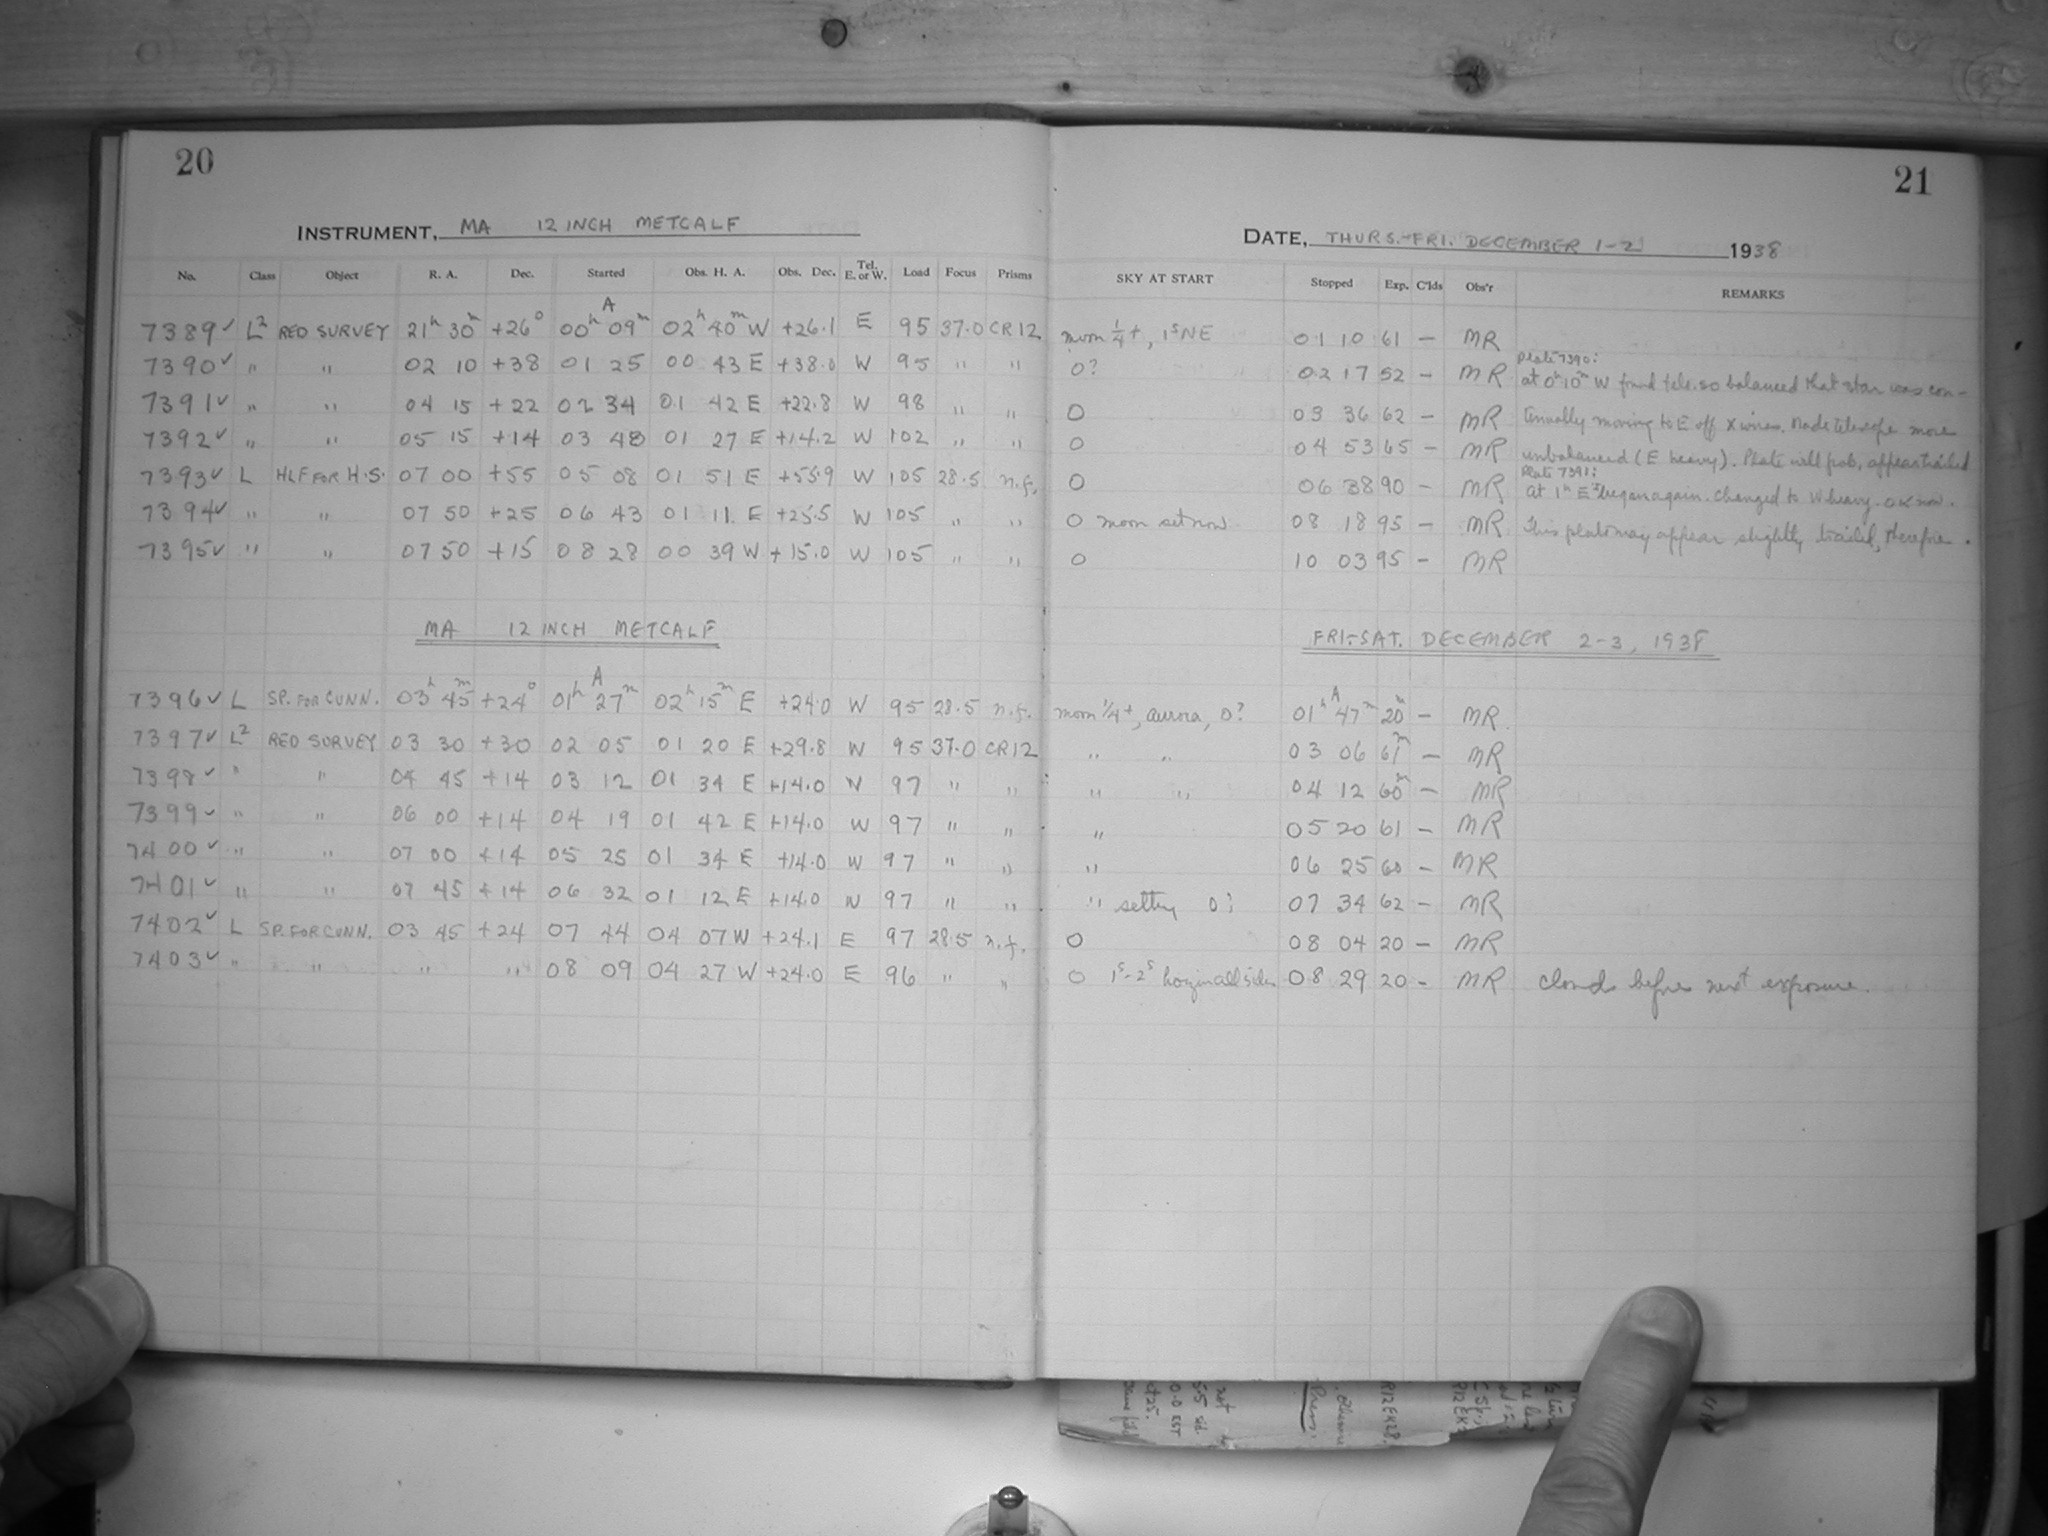 20
INSTRUMENT, MA 12 INCH METCALF
No. Class Object R. A. Dec. Started Obs. H. A. Obs. Dec. Tel. E. or W. Load Focus Prisms
7389✓ L² RED SURVEY 21ʰ 30ᵐ +26° 00ʰ A 09ᵐ 02ʰ 40ᵐ W +26.1 E 95 37.0 CR12
7390✓ " " 02 10 +38 01 25 00 43 E +38.0 W 95 " "
7391✓ " " 04 15 +22 02 34 01 42 E +22.8 W 98 " "
7392✓ " " 05 15 +14 03 48 01 27 E +14.2 W 102 " "
7393✓ L HLF FOR H.S. 07 00 +55 05 08 01 51 E +55.9 W 105 28.5 n.f.
7394✓ " " 07 50 +25 06 43 01 11 E +25.5 W 105 " "
7395✓ " " 07 50 +15 08 28 00 39 W +15.0 W 105 " "
MA 12 INCH METCALF
7396✓ L SP. FOR CUNN. 03ʰ 45ᵐ +24° 01ʰ A 27ᵐ 02ʰ 15ᵐ E +24.0 W 95 28.5 n.f.
7397✓ L² RED SURVEY 03 30 +30 02 05 01 20 E +29.8 W 95 37.0 CR12
7398✓ " " 04 45 +14 03 12 01 34 E +14.0 W 97 " "
7399✓ " " 06 00 +14 04 19 01 42 E +14.0 W 97 " "
7400✓ " " 07 00 +14 05 25 01 34 E +14.0 W 97 " "
7401✓ " " 07 45 +14 06 32 01 12 E +14.0 W 97 " "
7402✓ L SP. FOR CUNN. 03 45 +24 07 44 04 07 W +24.1 E 97 28.5 n.f.
7403✓ " " " " 08 09 04 27 W +24.0 E 96 " "
21
DATE, THURS.-FRI. DECEMBER 1-2 1938
SKY AT START Stopped Exp. C'lds Obs'r REMARKS
moon ¼+, 1ˢ NE 01 10 61 – MR
Plate 7390:
0? 02 17 52 – MR at 0ʰ10ᵐ W found tele. so balanced that star was con-
0 03 36 62 – MR tinually moving to E off X wires. Made telescope more
0 04 53 65 – MR unbalanced (E heavy). Plate will prob. appear trailed
Plate 7391:
0 06 38 90 – MR at 1ʰ E began again. Changed to W heavy. OK now.
0 moon set now 08 18 95 – MR This plate may appear slightly trailed, therefore.
0 10 03 95 – MR
FRI.-SAT. DECEMBER 2-3, 1938
moon ¼+, aurora, 0? 01ʰ A 47ᵐ 20ᵐ – MR
" " 03 06 61ᵐ – MR
" " 04 12 60ᵐ – MR
" 05 20 61 – MR
" 06 25 60 – MR
" setting 0? 07 34 62 – MR
0 08 04 20 – MR
0 1ˢ-2ˢ horizon all sides 08 29 20 – MR clouds before next exposure.